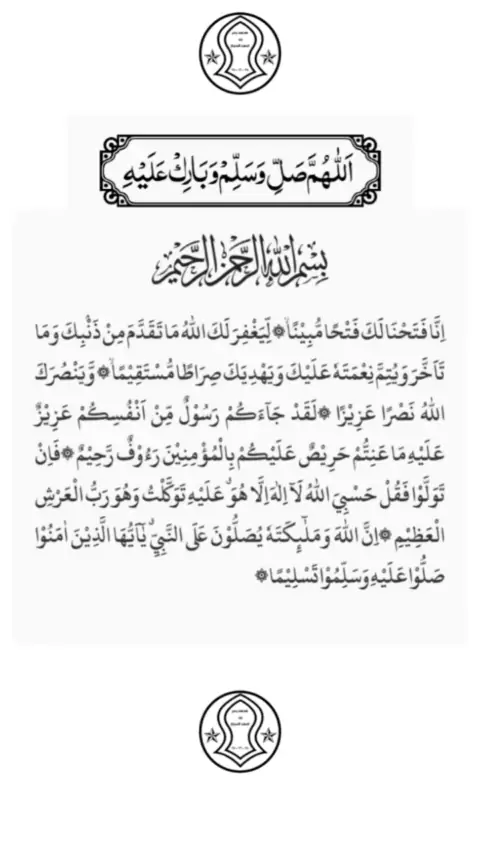 اَللّٰهُمَّ صَلِّ وَسَلِّمْ وَبَارِكْ عَلَيْهِ
بِسْمِ اللهِ الرَّحْمٰنِ الرَّحِيْمِ
اِنَّا فَتَحْنَا لَكَ فَتْحًا مُّبِيْنًاۙ۞ لِّيَغْفِرَ لَكَ اللهُ مَا تَقَدَّمَ مِنْ ذَنْۢبِكَ وَمَا
تَاَخَّرَ وَيُتِمَّ نِعْمَتَهٗ عَلَيْكَ وَيَهْدِيَكَ صِرَاطًا مُّسْتَقِيْمًاۙ۞ وَّيَنْصُرَكَ
اللهُ نَصْرًا عَزِيْزًا ۞ لَقَدْ جَاۤءَكُمْ رَسُوْلٌ مِّنْ اَنْفُسِكُمْ عَزِيْزٌ
عَلَيْهِ مَا عَنِتُّمْ حَرِيْصٌ عَلَيْكُمْ بِالْمُؤْمِنِيْنَ رَءُوْفٌ رَّحِيْمٌ ۞ فَاِنْ
تَوَلَّوْا فَقُلْ حَسْبِيَ اللهُ لَآ اِلٰهَ اِلَّا هُوَۗ عَلَيْهِ تَوَكَّلْتُ وَهُوَ رَبُّ الْعَرْشِ
الْعَظِيْمِ ۞ اِنَّ اللهَ وَمَلٰۤىِٕكَتَهٗ يُصَلُّوْنَ عَلَى النَّبِيِّۗ يٰٓاَيُّهَا الَّذِيْنَ اٰمَنُوْا
صَلُّوْا عَلَيْهِ وَسَلِّمُوْا تَسْلِيْمًا ۞